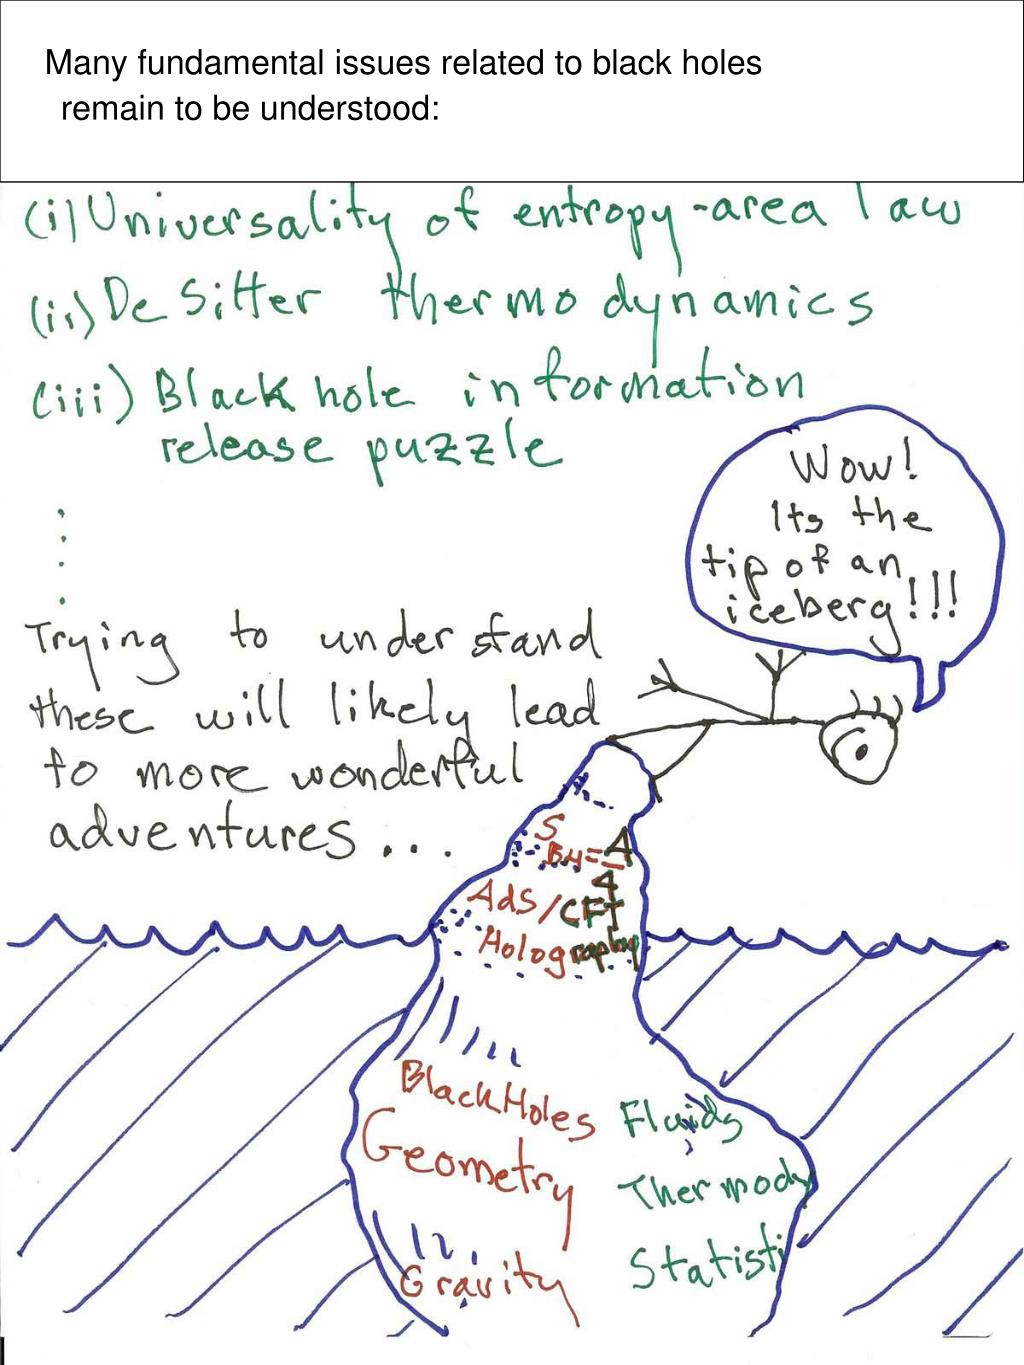 Many fundamental issues related to black holes
remain to be understood:
(i) Universality of entropy-area law
(ii) De Sitter thermodynamics
(iii) Black hole information
release puzzle
Wow!
Its the
tip of an
iceberg!!!
Trying to understand
these will likely lead
to more wonderful
adventures...
S
BH=A
4
AdS/CFT
Holography
Black Holes Fluids
Geometry Thermody
Gravity Statisti